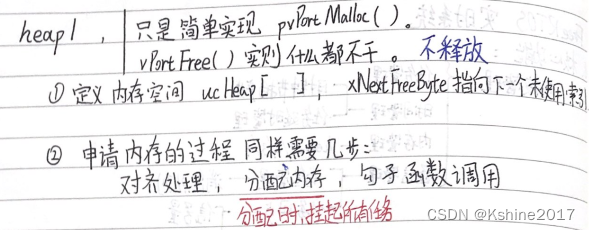 heap1, 只是简单实现 pvPortMalloc()。
vPortFree() 实则什么都不干。 不释放
① 定义内存空间 ucHeap[ ], xNextFreeByte 指向下一个未使用索引
② 申请内存的过程 同样需要几步:
对齐处理, 分配内存, 勾子函数调用
分配时,挂起所有任务
CSDN @Kshine2017